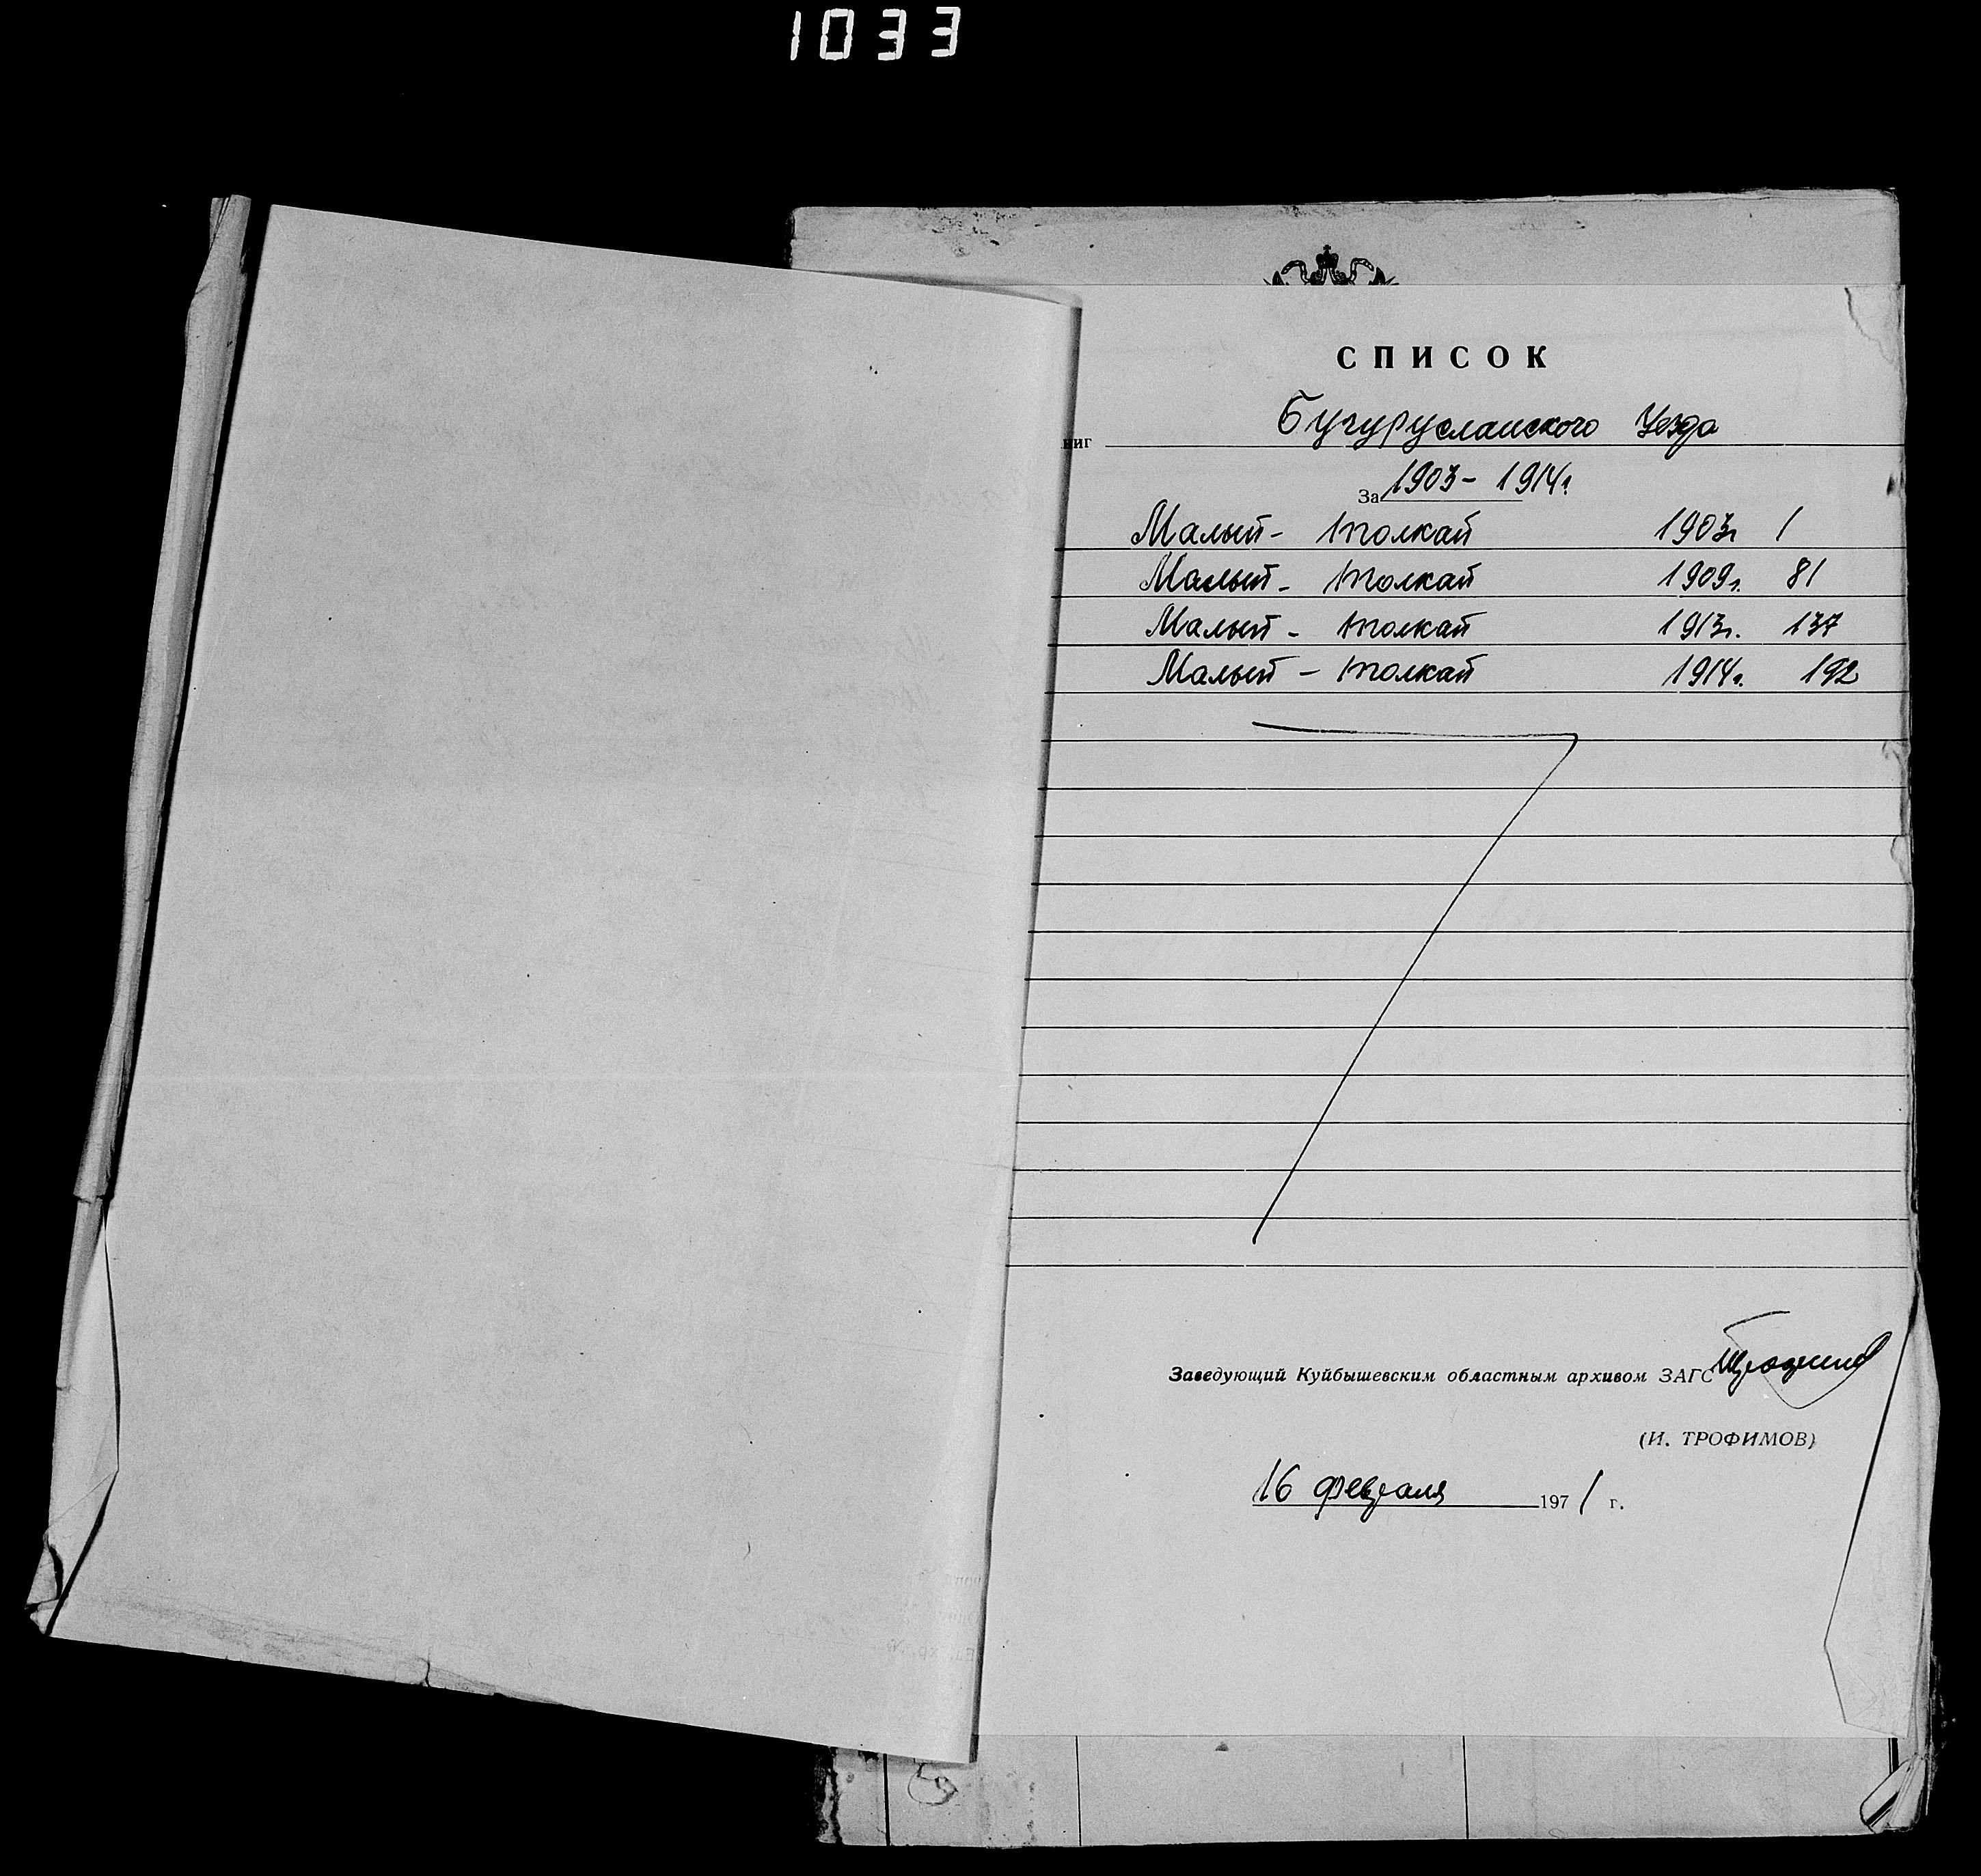 1033
СПИСОК
ниг Бугурусланского Уезда
За 1903- 1914г
Малый- Толкай 1903г 1
Малый- Толкай 1909г. 81
Малый- Толкай 1913г. 137
Малый- Толкай 1914г. 192
Заведующий Куйбышевским областным архивом ЗАГС
(И. ТРОФИМОВ)
16 февраля 1971 г.